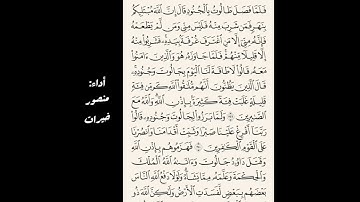 فَلَمَّا فَصَلَ طَالُوتُ بِالْجُنُودِ قَالَ إِنَّ اللَّهَ مُبْتَلِيكُم
بِنَهَرٍ فَمَن شَرِبَ مِنْهُ فَلَيْسَ مِنِّي وَمَن لَّمْ يَطْعَمْهُ
فَإِنَّهُ مِنِّي إِلَّا مَنِ اغْتَرَفَ غُرْفَةً بِيَدِهِ فَشَرِبُوا مِنْهُ
إِلَّا قَلِيلًا مِّنْهُمْ فَلَمَّا جَاوَزَهُ هُوَ وَالَّذِينَ آمَنُوا
مَعَهُ قَالُوا لَا طَاقَةَ لَنَا الْيَوْمَ بِجَالُوتَ وَجُنُودِهِ
قَالَ الَّذِينَ يَظُنُّونَ أَنَّهُم مُّلَاقُو اللَّهِ كَم مِّن فِئَةٍ
قَلِيلَةٍ غَلَبَتْ فِئَةً كَثِيرَةً بِإِذْنِ اللَّهِ وَاللَّهُ مَعَ
الصَّابِرِينَ ۝ وَلَمَّا بَرَزُوا لِجَالُوتَ وَجُنُودِهِ قَالُوا
رَبَّنَا أَفْرِغْ عَلَيْنَا صَبْرًا وَثَبِّتْ أَقْدَامَنَا وَانصُرْنَا
عَلَى الْقَوْمِ الْكَافِرِينَ ۝ فَهَزَمُوهُم بِإِذْنِ اللَّهِ
وَقَتَلَ دَاوُودُ جَالُوتَ وَآتَاهُ اللَّهُ الْمُلْكَ
وَالْحِكْمَةَ وَعَلَّمَهُ مِمَّا يَشَاءُ وَلَوْلَا دَفْعُ اللَّهِ النَّاسَ
بَعْضَهُم بِبَعْضٍ لَّفَسَدَتِ الْأَرْضُ وَلَٰكِنَّ اللَّهَ ذُو
أداء:
منصور
خيرات